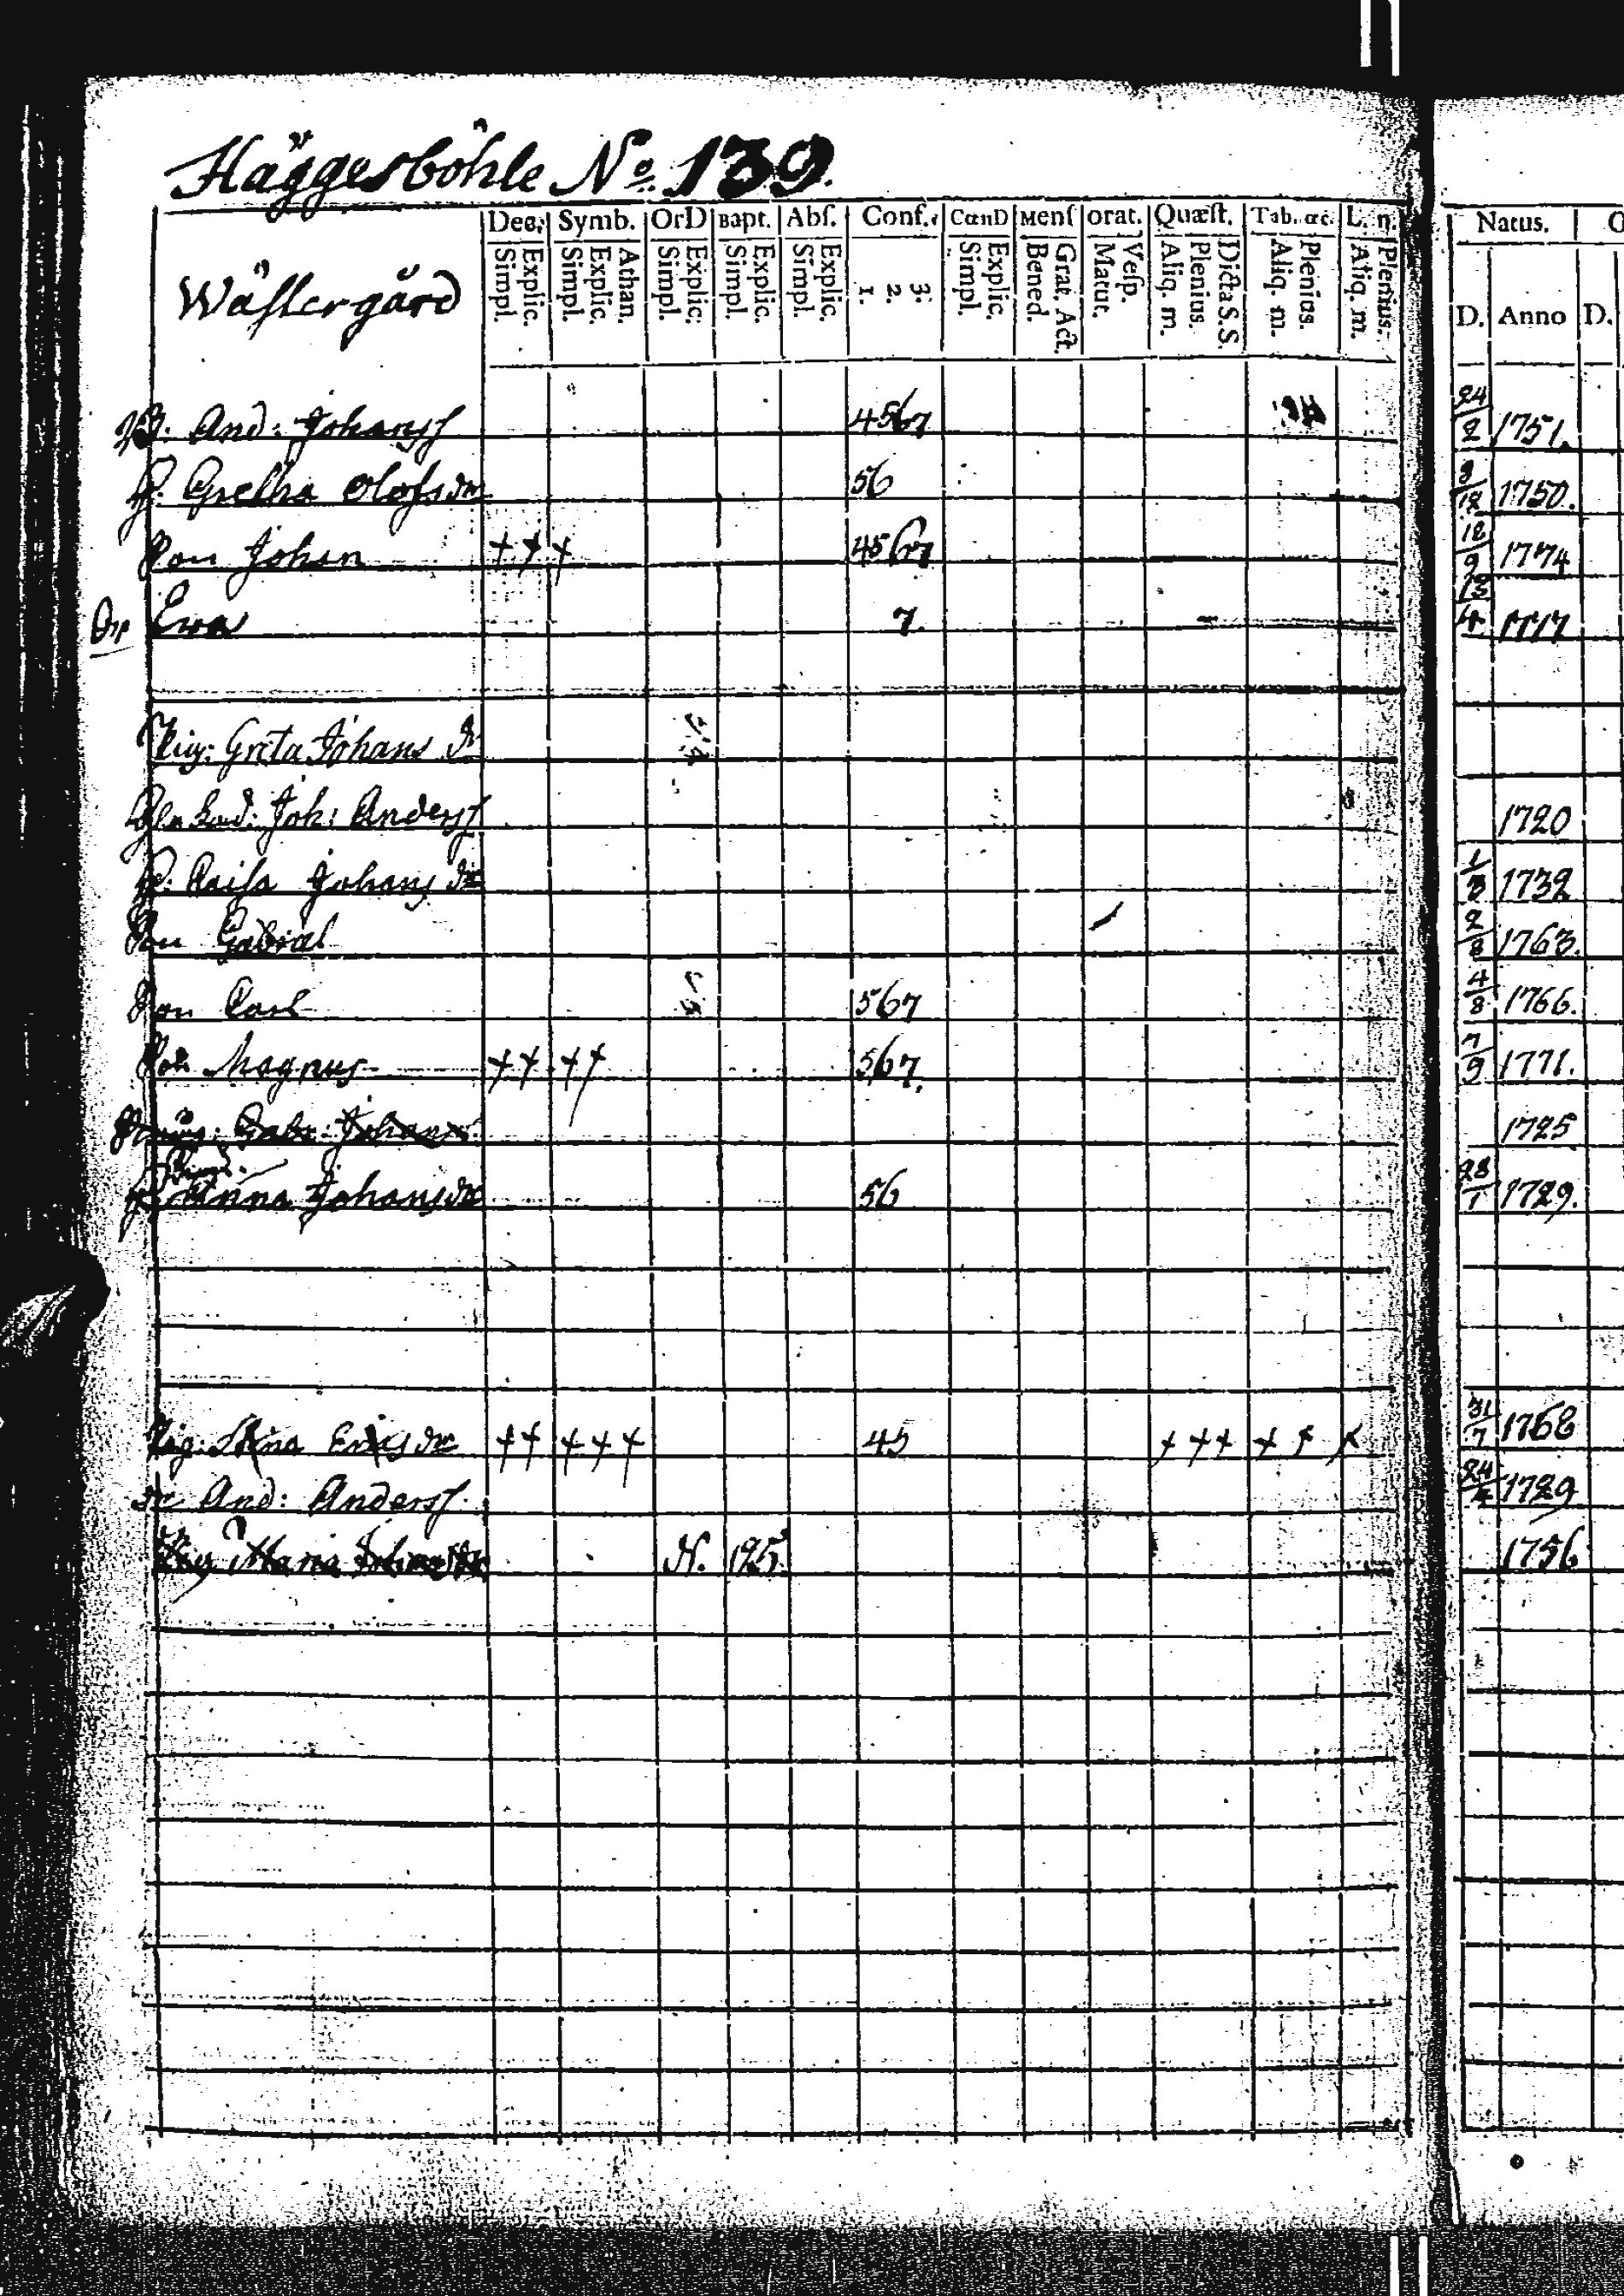 Häggesböhle No. 139.
Wästergård
Dec. Symb. OrD Bapt. Abſ. Conf. CœnD Menſ orat. Quæſt. Tab. œc. Natus.
Simpl. Explic. Simpl. Explic. Athan. Simpl. Explic. Simpl. Explic. Simpl. Explic. 1. 2. 3. Simpl. Explic. Bened. Grat. Act. Matut. Veſp. Aliq. m. Plenius. Dicta S.S. Aliq. m. Plenius. Aliq. m. Plenius. D. Anno D.
And: Johansſ 4567 24/2 1751.
H. Gretha Olofsdr 56 9/12 1750.
Son Johan + + + 4567 12/9 1774
Ewa 7. 13/4 1777
Pig: Greta Johans dr
Joh: Andersſ 1720
H. Caisa Johansdr 1732
Son Gabriel 2/8 1763.
Son Carl 567 4/8 1766.
Son Magnus + + + + 567. 7/9 1771.
Gabr: Johans 1725
Anna Johansdr 56 28/1 1729.
Pig: Ericsdr + + + + + 45 + + + + + + 31/7 1768
And: Andersſ. 1729
Maria N. 125. 1756